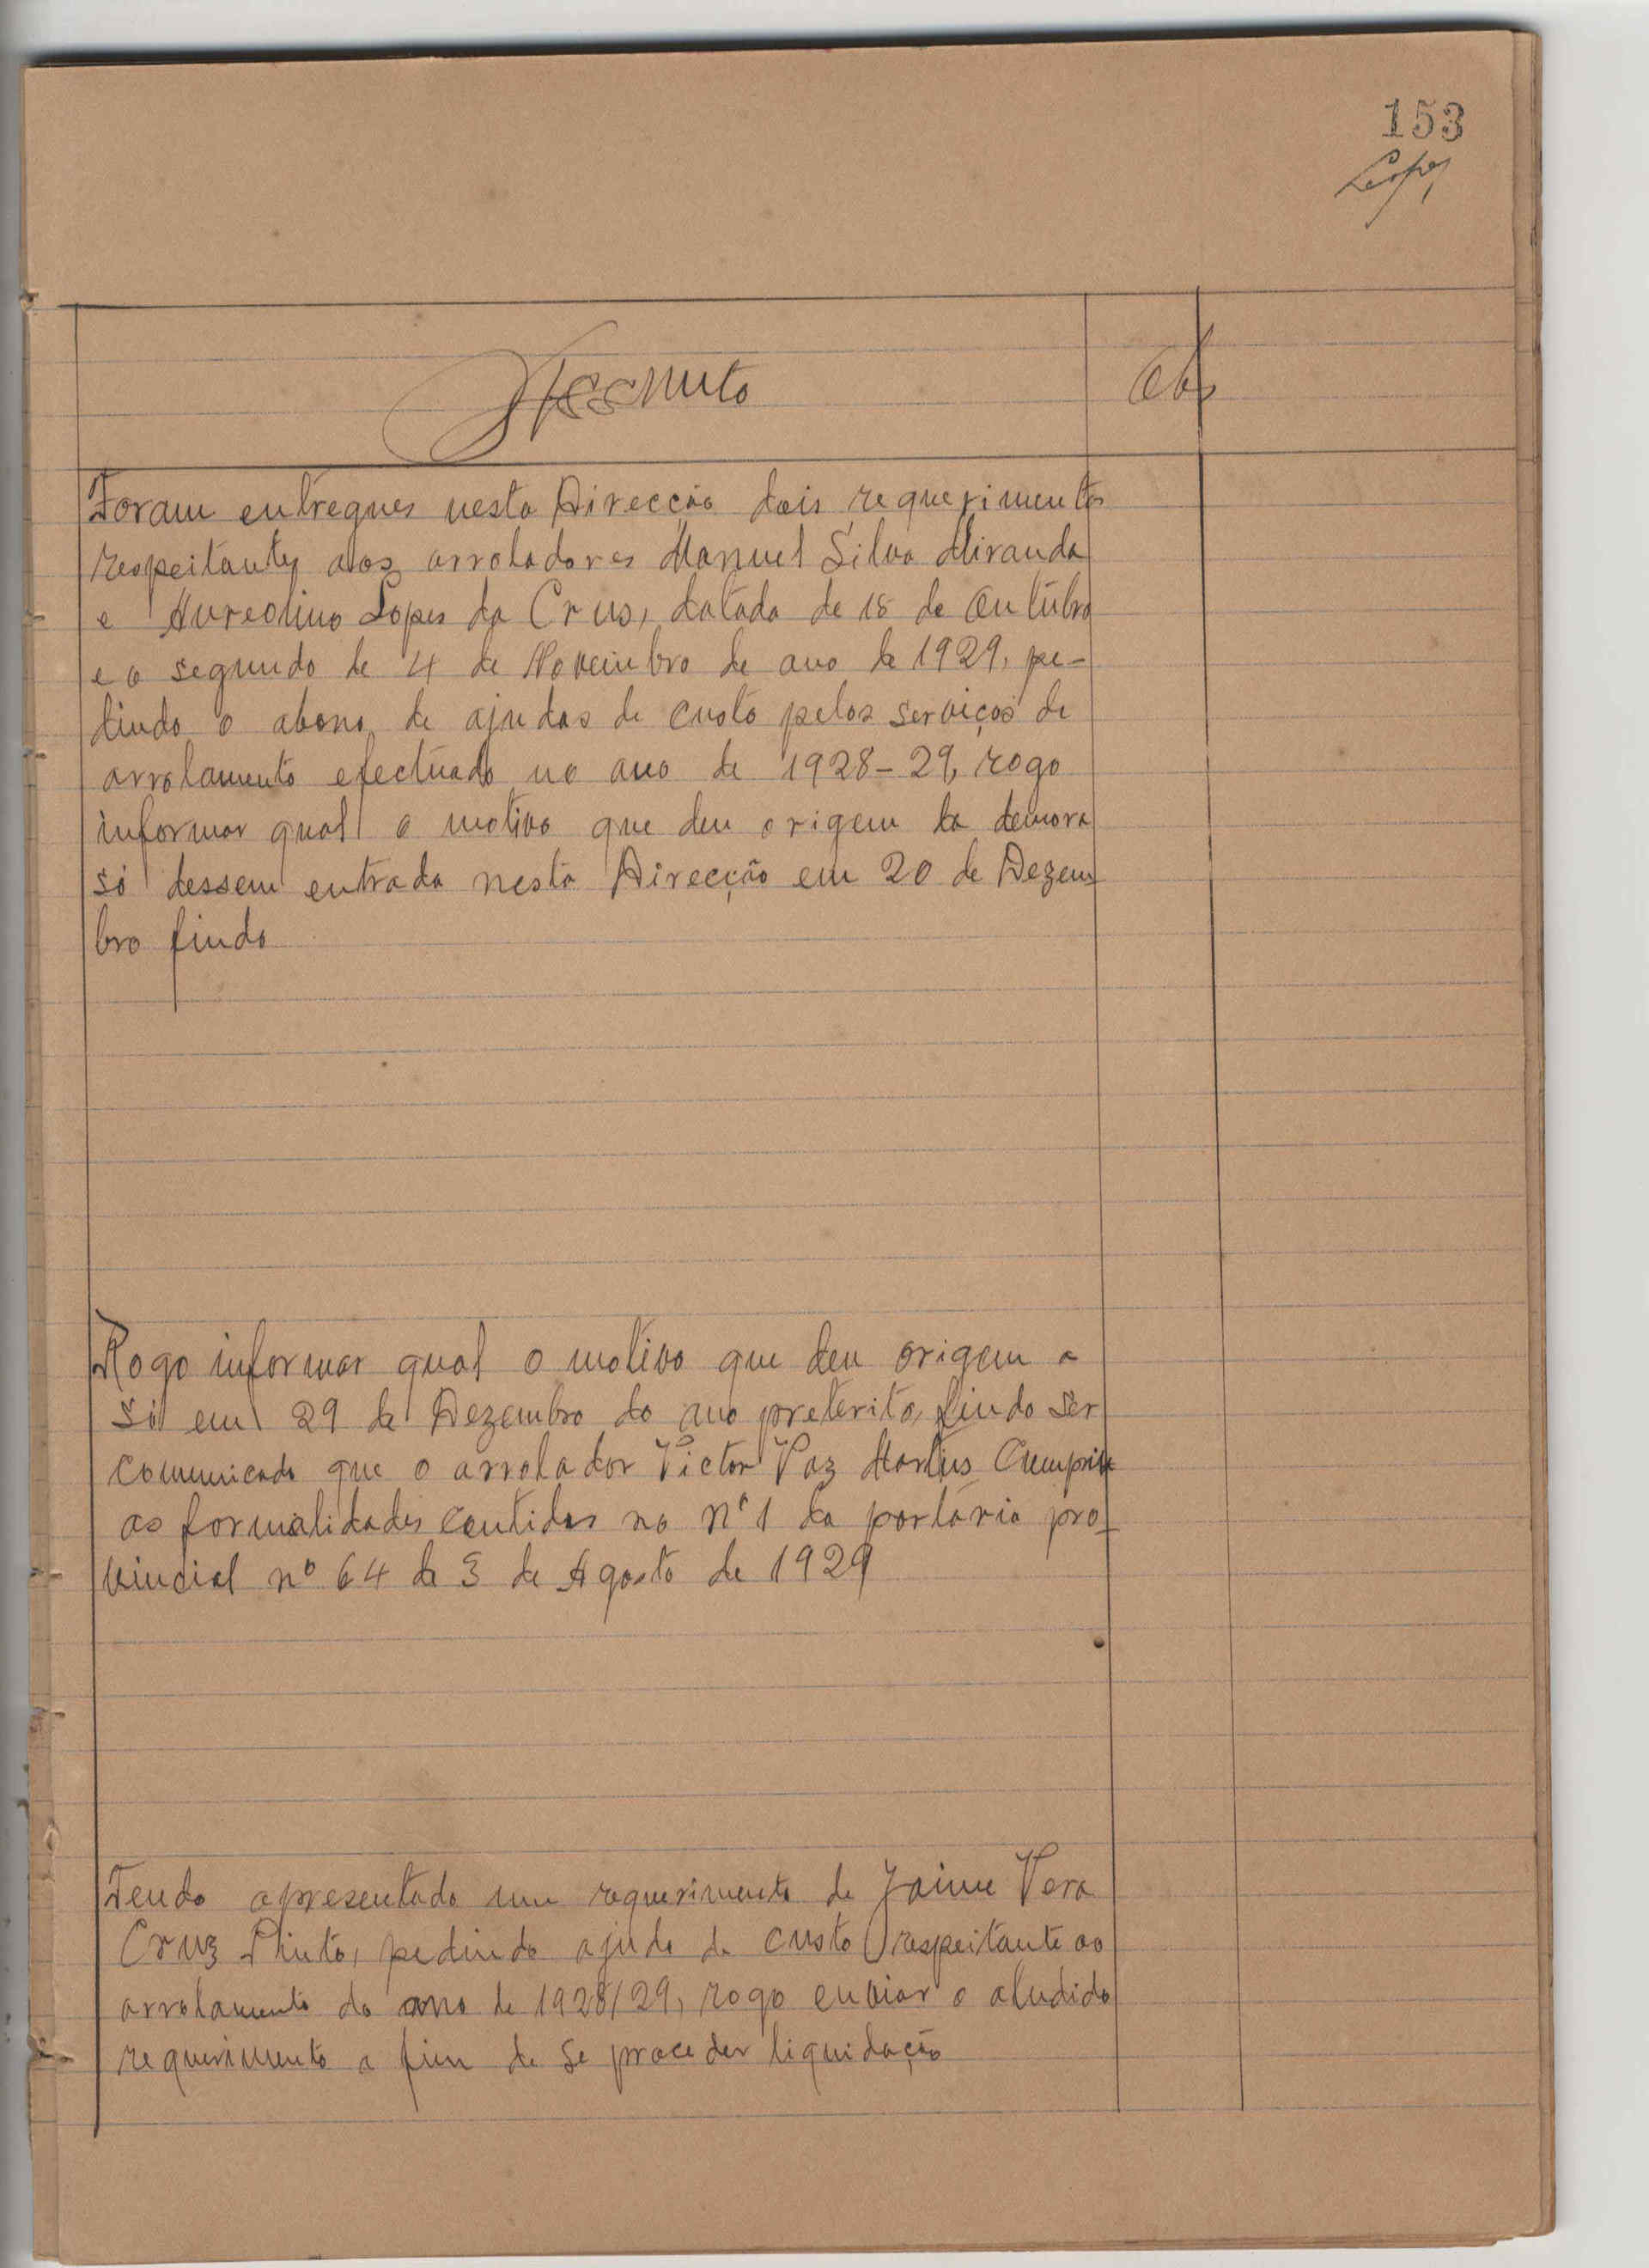 153
Lopes
Assunto
Obs
Foram entregues nesta Direcção dois requerimentos
respeitantes aos arroladores Manuel Silva Miranda
e Aureolino Lopes da Crus, datado de 18 de Outubro
e o segundo de 4 de Novembro de ano de 1929, pe-
dindo o abono de ajudas de custo pelos serviços de
arrolamento efectuado no ano de 1928-29, rogo
informar qual o motivo que deu origem da demora
só dessem entrada nesta Direcção em 20 de Dezem
bro findo
Rogo informar qual o motivo que deu origem a
só em 29 de Dezembro do ano preterito, findo ser
comunicado que o arrolador Victor Vaz Martins Cumpriu
as formalidades contidas no nº 1 da portaria pro-
vincial nº 64 de 3 de Agosto de 1929
Tendo apresentado um requerimento de Jaime Vera
Cruz Pinto, pedindo ajuda de custo respeitante ao
arrolamento do ano de 1928/29, rogo enviar o aludido
requerimento a fim de se proceder liquidação